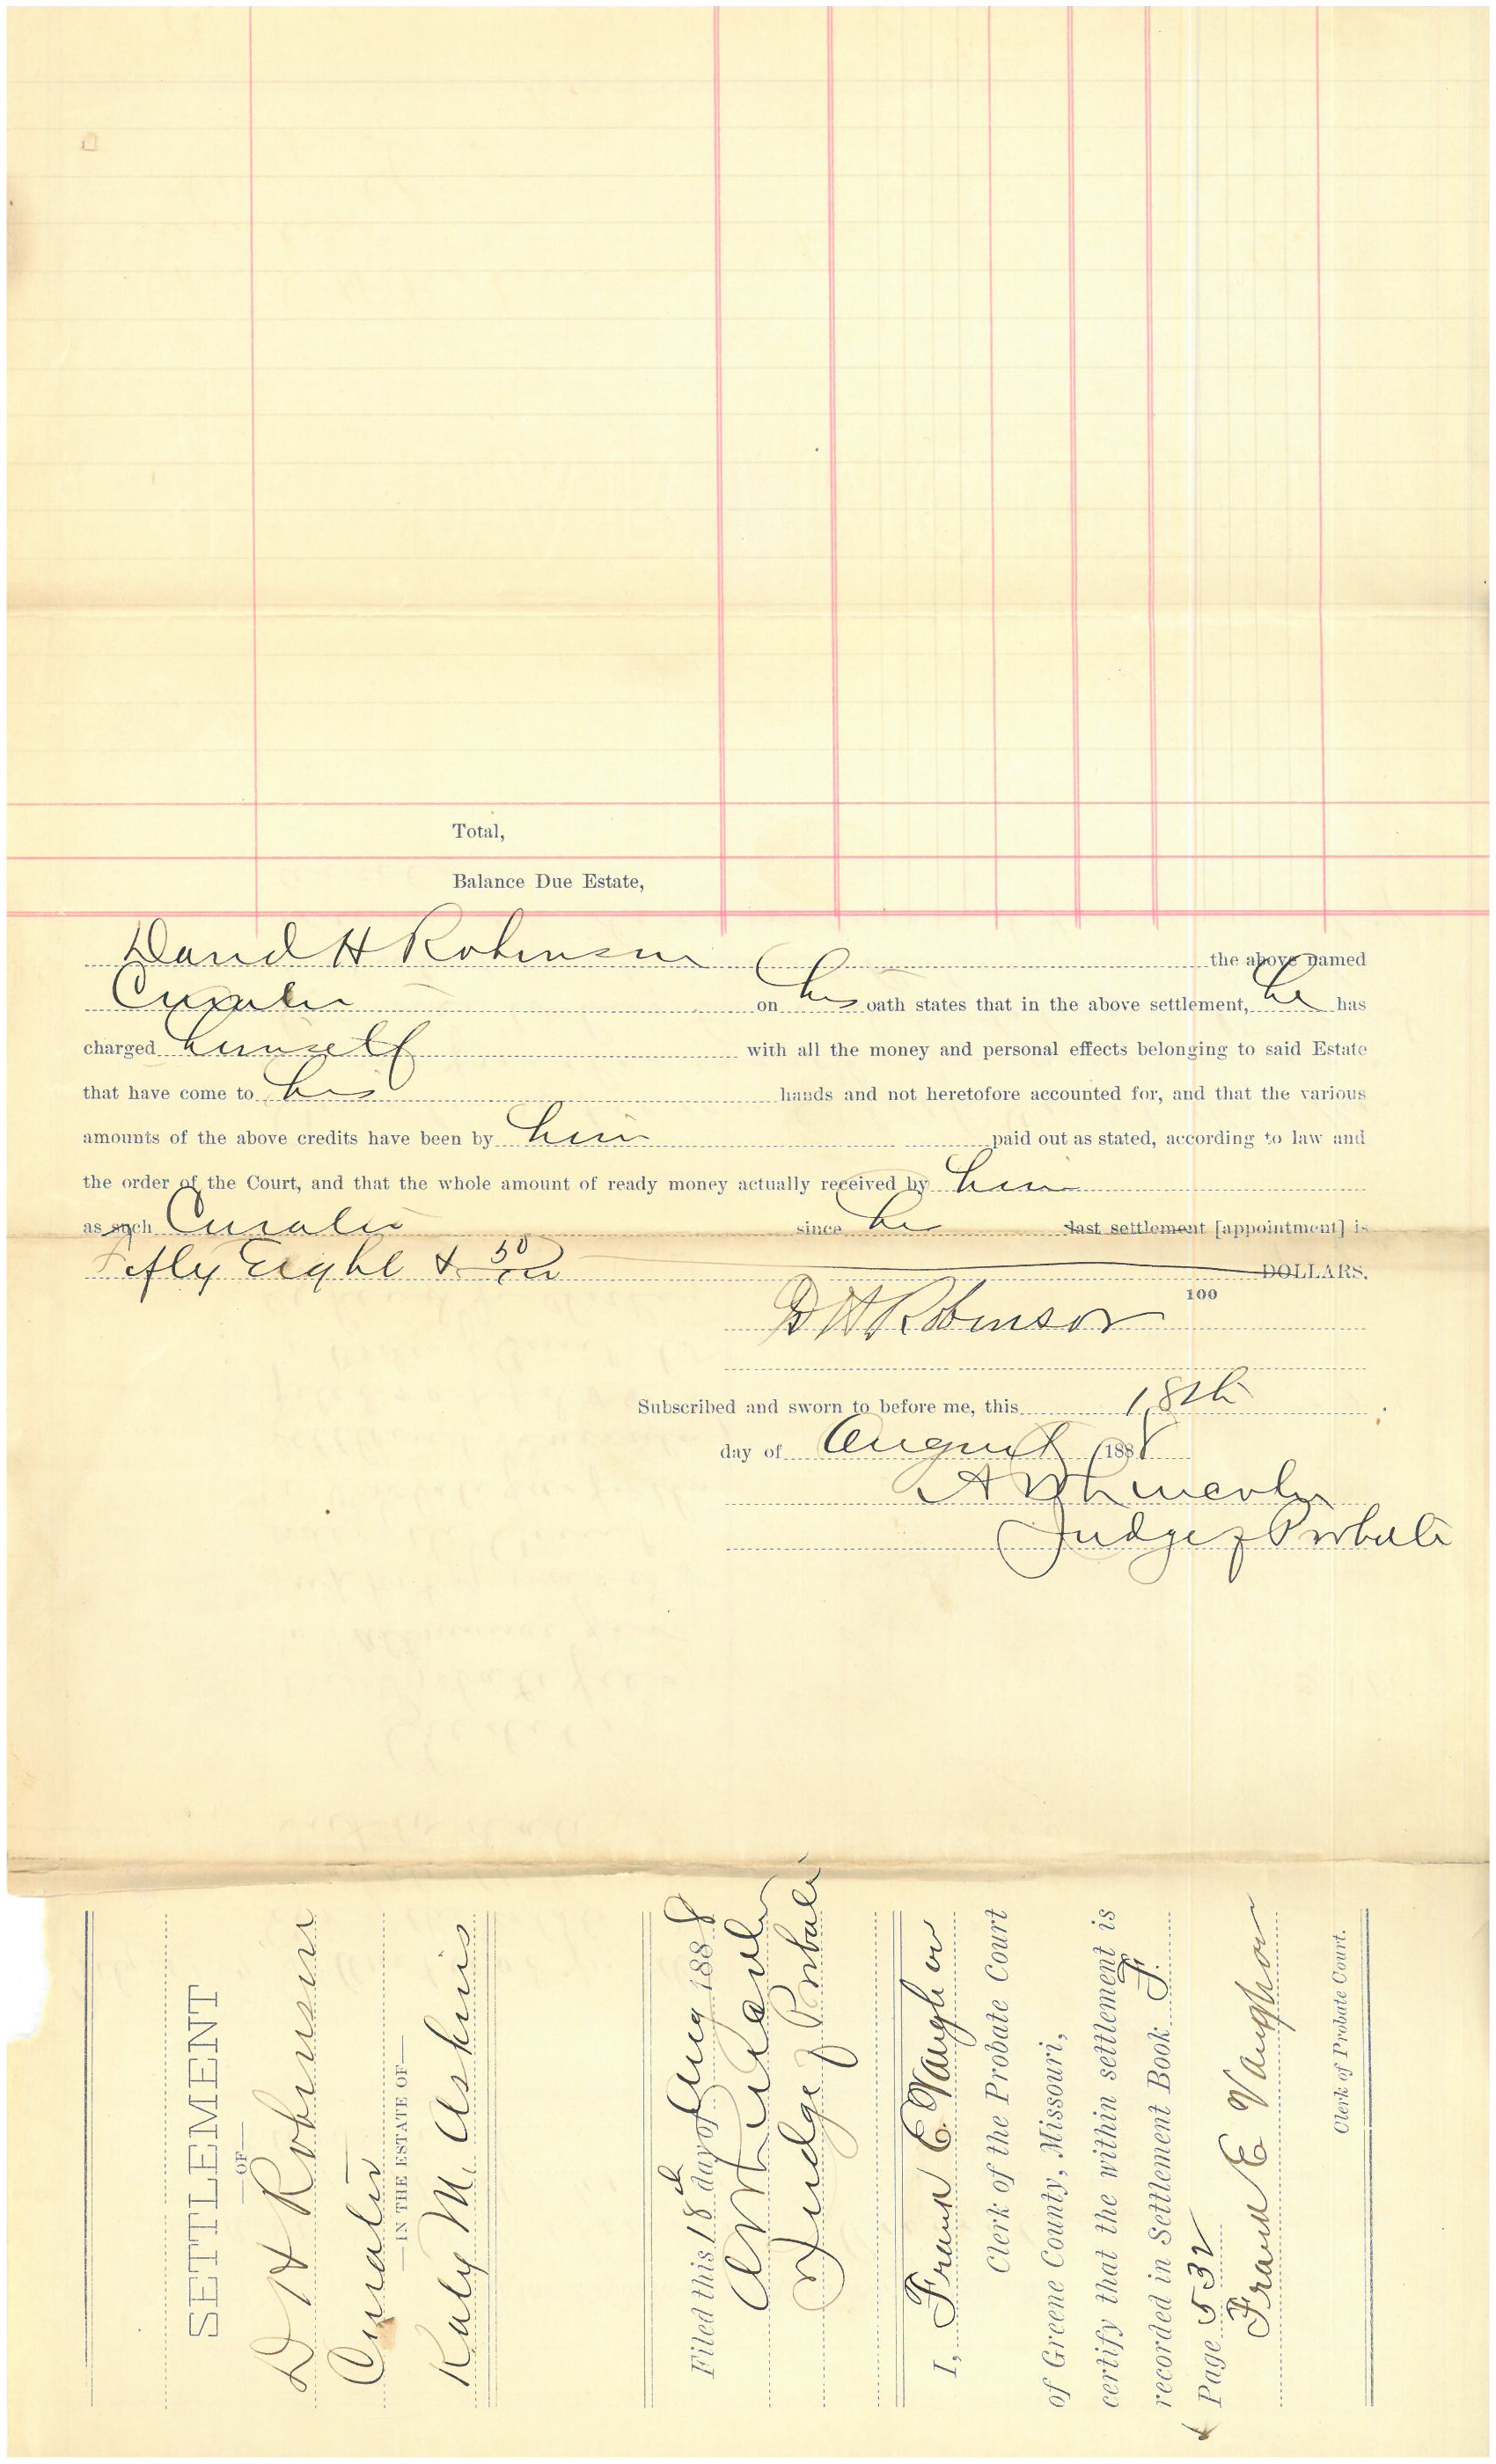 Total,
Balance Due Estate,
David H Robinson the above named
Curator on his oath states that in the above settlement, he has
charged himself with all the money and personal effects belonging to said Estate
that have come to his hands and not heretofore accounted for, and that the various
amounts of the above credits have been by him paid out as stated, according to law and
the order of the Court, and that the whole amount of ready money actually received by him
as such Curator since he last settlement [appointment] is
Fifty Eight & 50/100 DOLLARS.
100
D H Robinson
Subscribed and sworn to before me, this 18th
day of August 1888
Judge of Probate
SETTLEMENT
—OF—
D H Robinson
Curator
—IN THE ESTATE OF—
Katy M. Askins
Filed this 18th day of Aug 1888
Judge of Probate
I, Frank E. Vaughan
Clerk of the Probate Court
of Greene County, Missouri,
certify that the within settlement is
recorded in Settlement Book F.
Page 532
Frank E Vaughan
Clerk of Probate Court.